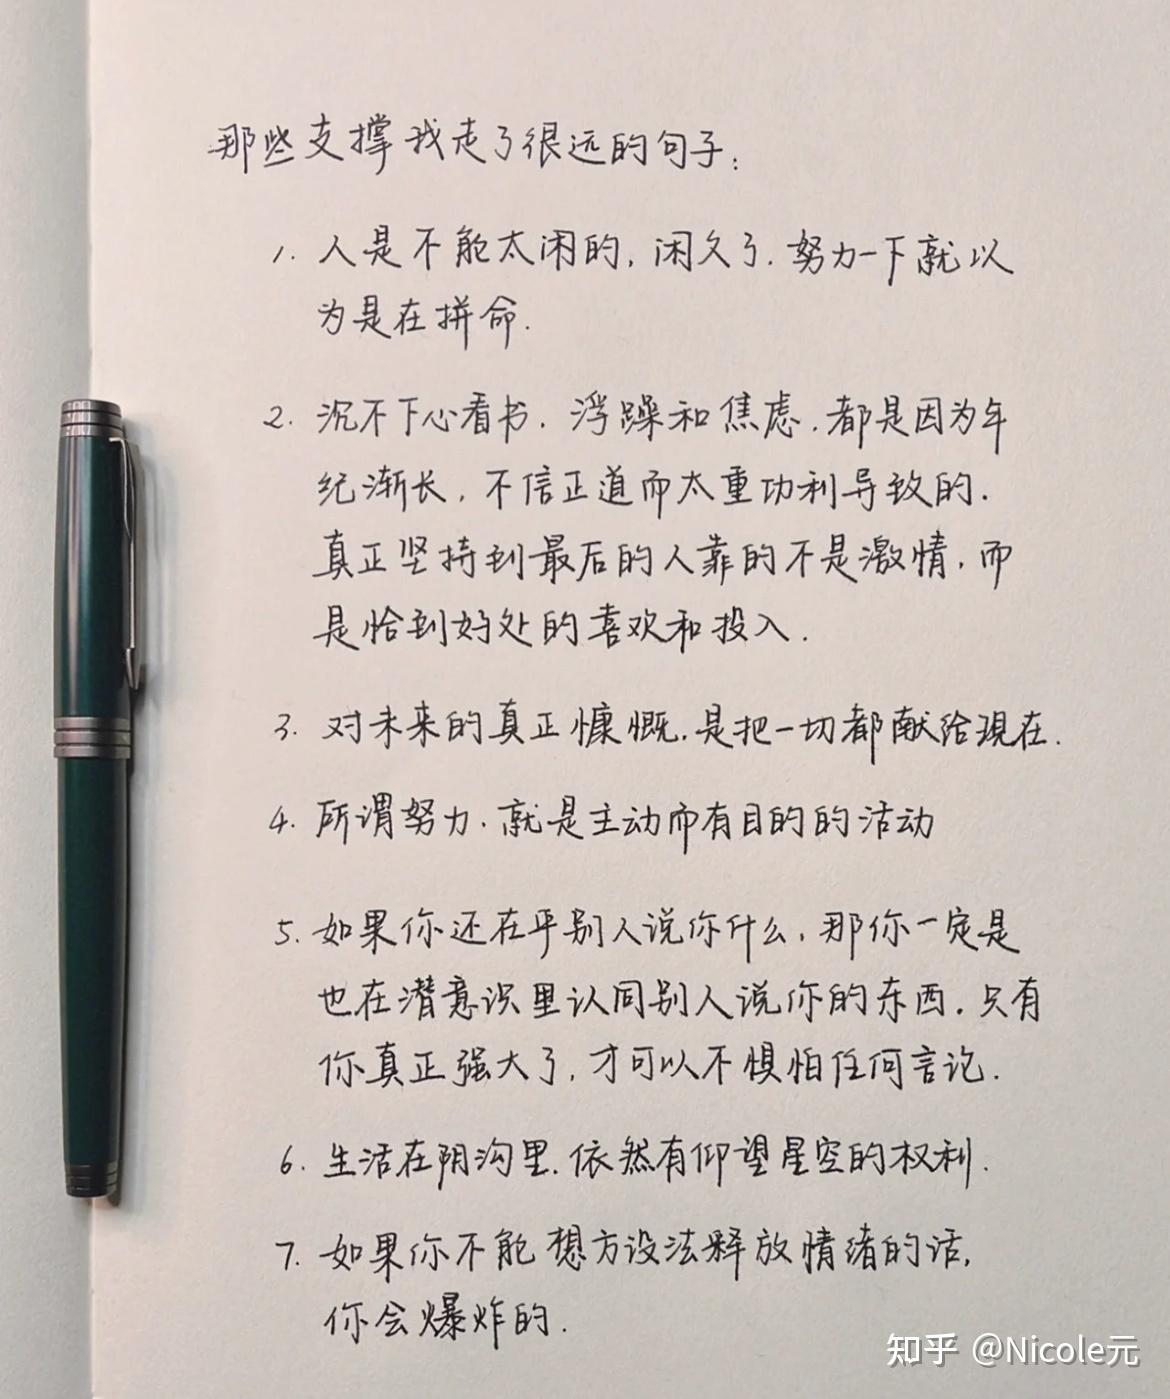 那些支撑我走了很远的句子：
1. 人是不能太闲的，闲久了．努力一下就以
为是在拼命．
2. 沉不下心看书．浮躁和焦虑．都是因为年
纪渐长，不信正道而太重功利导致的．
真正坚持到最后的人靠的不是激情，而
是恰到好处的喜欢和投入．
3. 对未来的真正慷慨．是把一切都献给现在．
4. 所谓努力．就是主动而有目的的活动
5. 如果你还在乎别人说你什么，那你一定是
也在潜意识里认同别人说你的东西．只有
你真正强大了，才可以不惧怕任何言论．
6. 生活在阴沟里．依然有仰望星空的权利．
7. 如果你不能想方设法释放情绪的话，
你会爆炸的．
知乎 @Nicole元